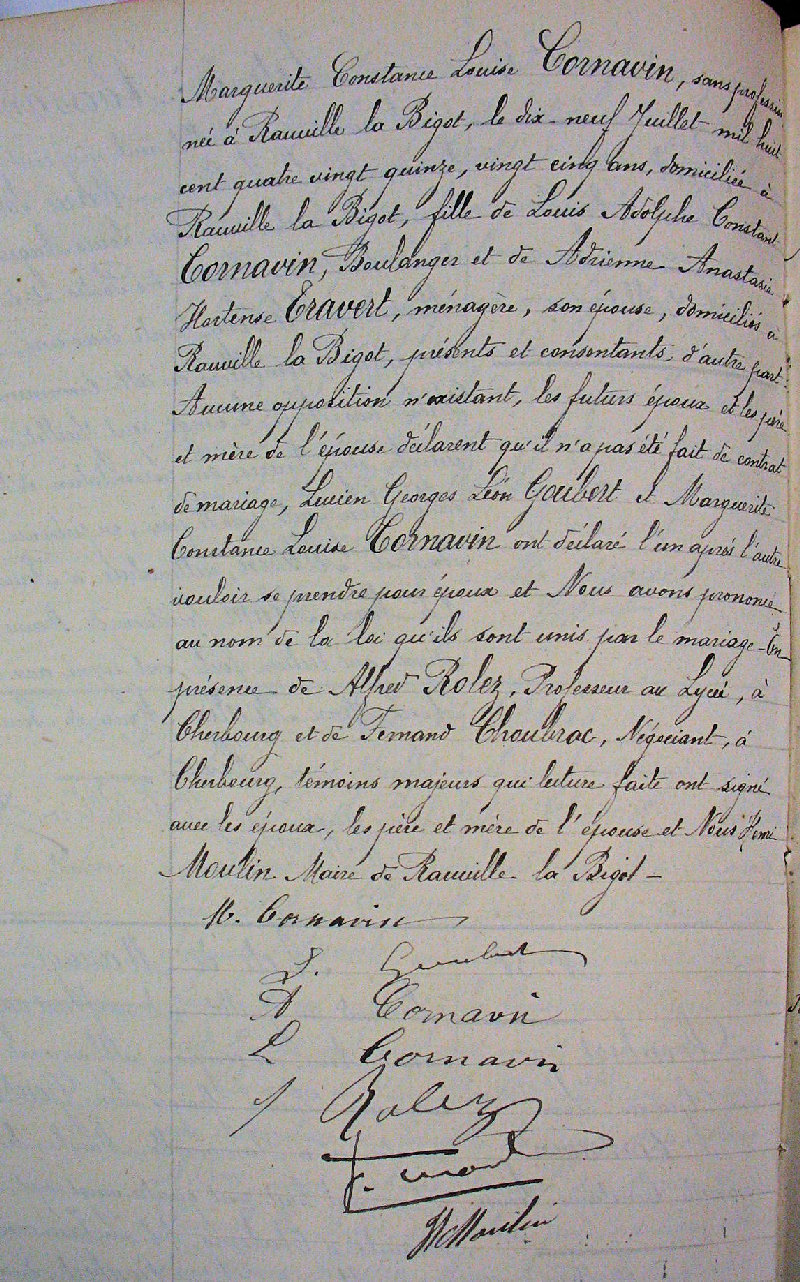 Marguerite Constance Louise Cornavin, sans profession
née à Rauville la Bigot, le dix-neuf Juillet mil huit
cent quatre vingt quinze, vingt cinq ans, domiciliée à
Rauville la Bigot, fille de Louis Adolphe Constant
Cornavin, Boulanger et de Adrienne Anastasie
Hortense Travert, ménagère, son épouse, domiciliés à
Rauville la Bigot, présents et consentants, d'autre part.
Aucune opposition n'existant, les futurs époux et les père
et mère de l'épouse déclarent qu'il n'a pas été fait de contrat
de mariage, Lucien Georges Léon Goubert et Marguerite
Constance Louise Cornavin ont déclaré l'un après l'autre
vouloir se prendre pour époux et Nous avons prononcé
au nom de la loi qu'ils sont unis par le mariage - En
présence de Alfred Rolez, Professeur au Lycée, à
Cherbourg et de Fernand Choubrac, Négociant, à
Cherbourg, témoins majeurs qui lecture faite ont signé
avec les époux, les père et mère de l'épouse et Nous Henri
Moulin Maire de Rauville la Bigot -
M. Cornavin
L. Goubert
A Cornavin
L Cornavin
Rolez
HMoulin